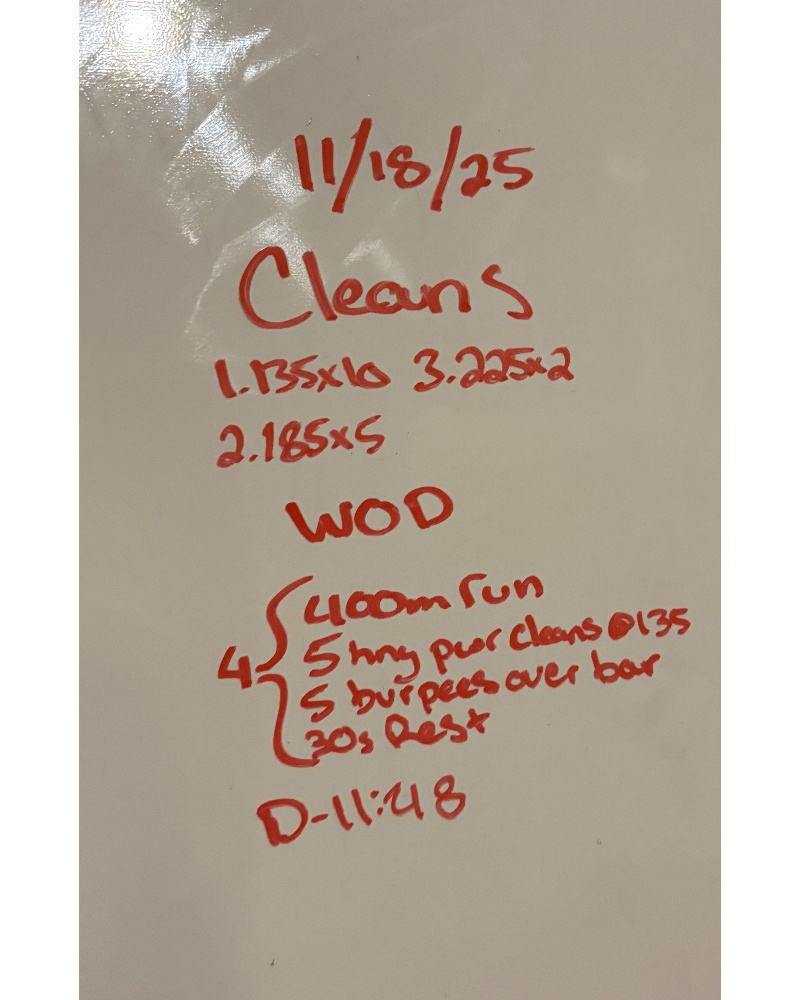 11/18/25
Cleans
1.135x10 3.225x2
2.185x5
WOD
400m run
5 hng pwr cleans @135
4
5 burpees over bar
30s Rest
D-11:48